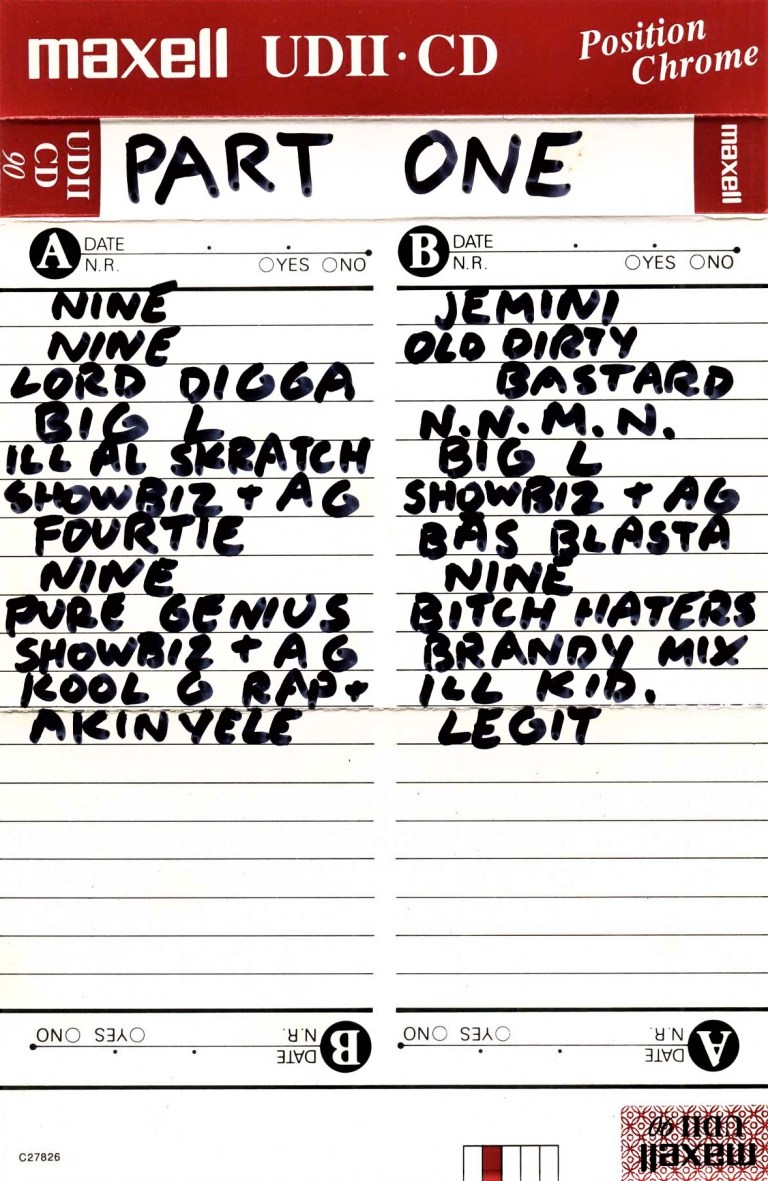 maxell UDII·CD Position Chrome
UDII CD 90
PART ONE
maxell
A DATE
N.R. YES NO
NINE
NINE
LORD DIGGA
BIG L
ILL AL SKRATCH
SHOWBIZ + AG
FOURTIE
NINE
PURE GENIUS
SHOWBIZ + AG
KOOL G RAP +
AKINYELE
B DATE
N.R. YES NO
JEMINI
OLD DIRTY
BASTARD
N.N.M.N.
BIG L
SHOWBIZ + AG
BAS BLASTA
NINE
BITCH HATERS
BRANDY MIX
ILL KID.
LEGIT
B DATE
N.R. YES NO
A DATE
N.R. YES NO
C27826
maxell
UDII 90